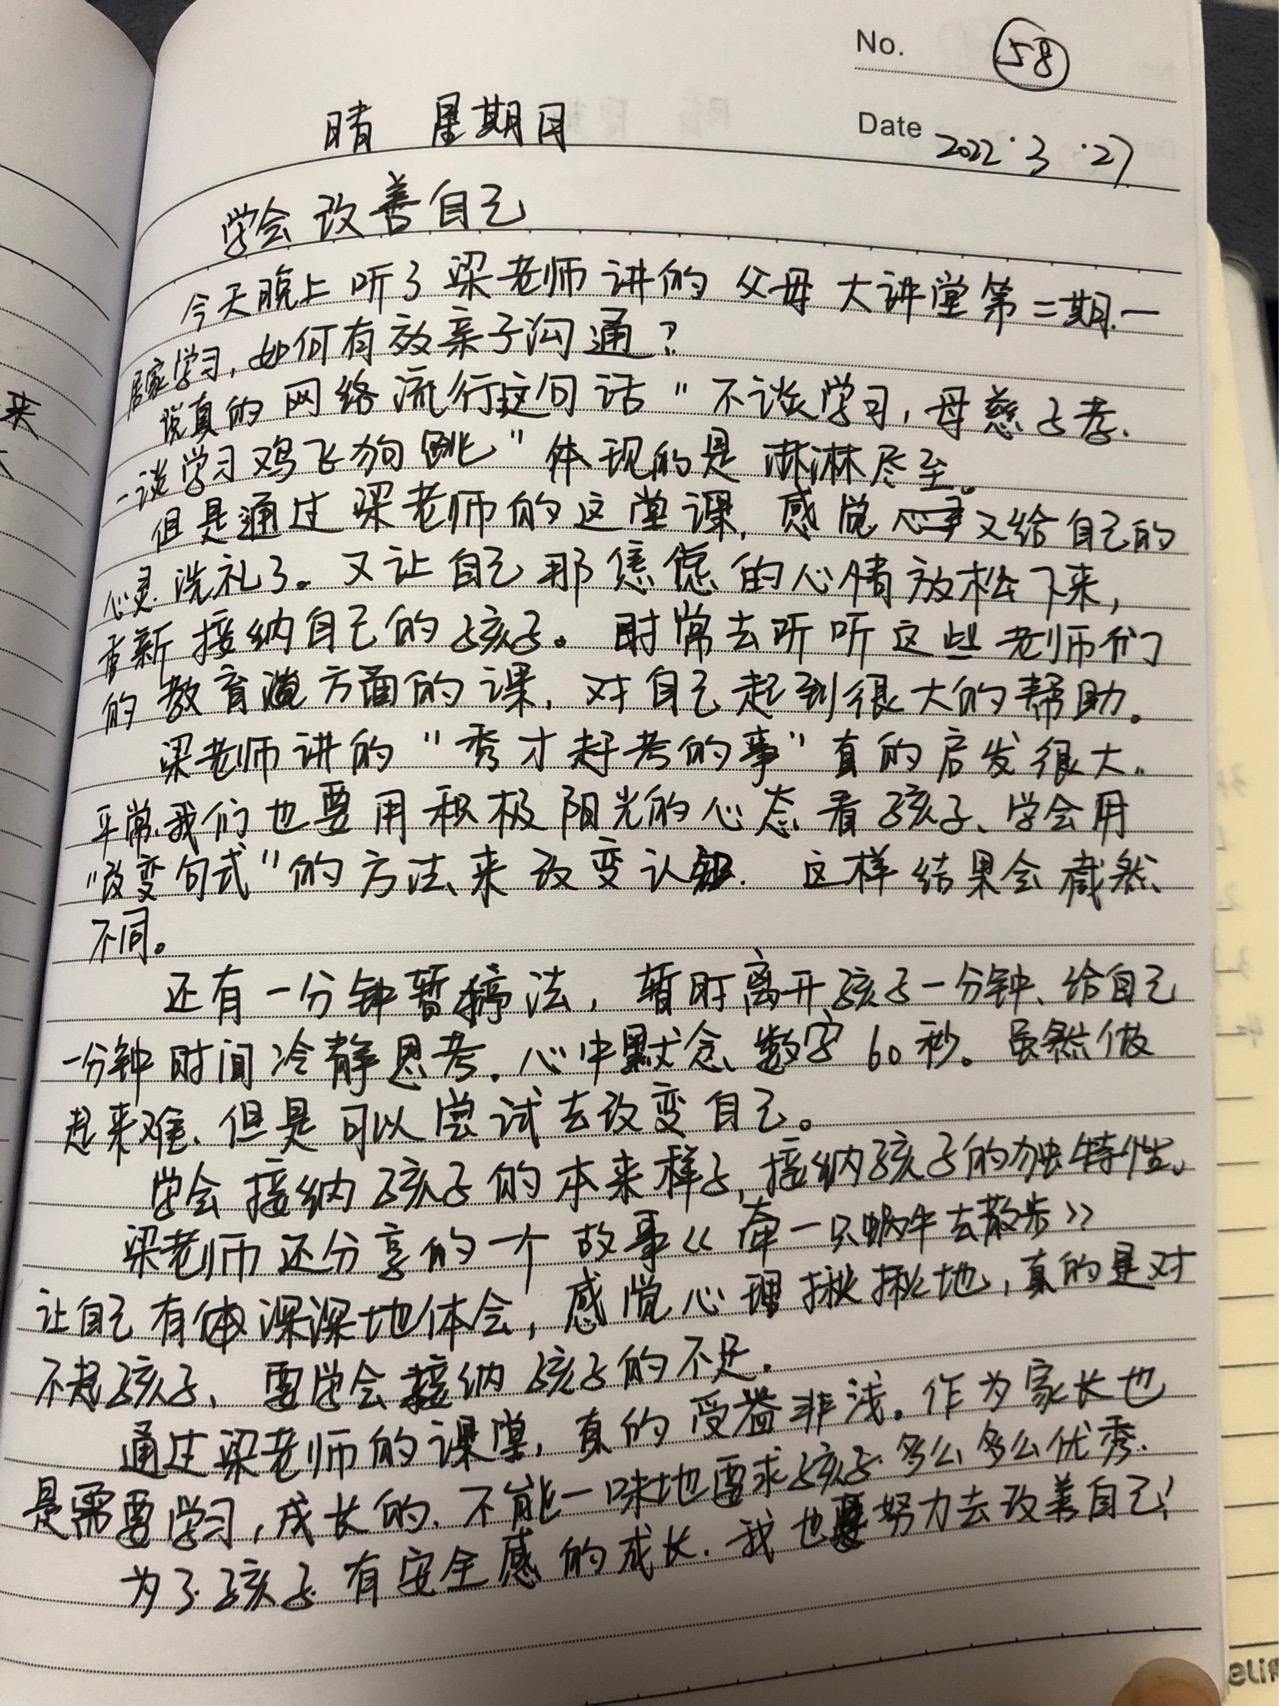 No. 58
晴 星期日
Date 2022.3.27
学会改善自己
今天晚上听了梁老师讲的父母大讲堂第二期.一
居家学习,如何有效亲子沟通?
说真的网络流行这句话"不谈学习,母慈子孝.
一谈学习鸡飞狗跳"体现的是淋淋尽至。
但是通过梁老师的这堂课,感觉又给自己的
心灵洗礼了。又让自己那焦虑的心情放松下来,
重新接纳自己的孩子。时常去听听这些老师们
的教育方面的课,对自己起到很大的帮助。
梁老师讲的"秀才赶考的事"真的启发很大。
平常.我们也要用积极阳光的心态看孩子、学会用
"改变句式"的方法来改变认知. 这样结果会截然
不同。
还有一分钟暂停法,暂时离开孩子一分钟、给自己
一分钟时间冷静思考.心中默念数字60秒。虽然做
起来难、但是可以尝试去改变自己。
学会接纳孩子的本来样子,接纳孩子的独特性。
梁老师还分享的一个故事《牵一只蜗牛去散步》
让自己有深深地体会,感觉心理揪揪地,真的是对
不起孩子、要学会接纳孩子的不足.
通过梁老师的课堂,真的受益非浅.作为家长也
是需要学习,成长的.不能一味地要求孩子多么多么优秀.
为了孩子有安全感的成长.我也要努力去改善自己!